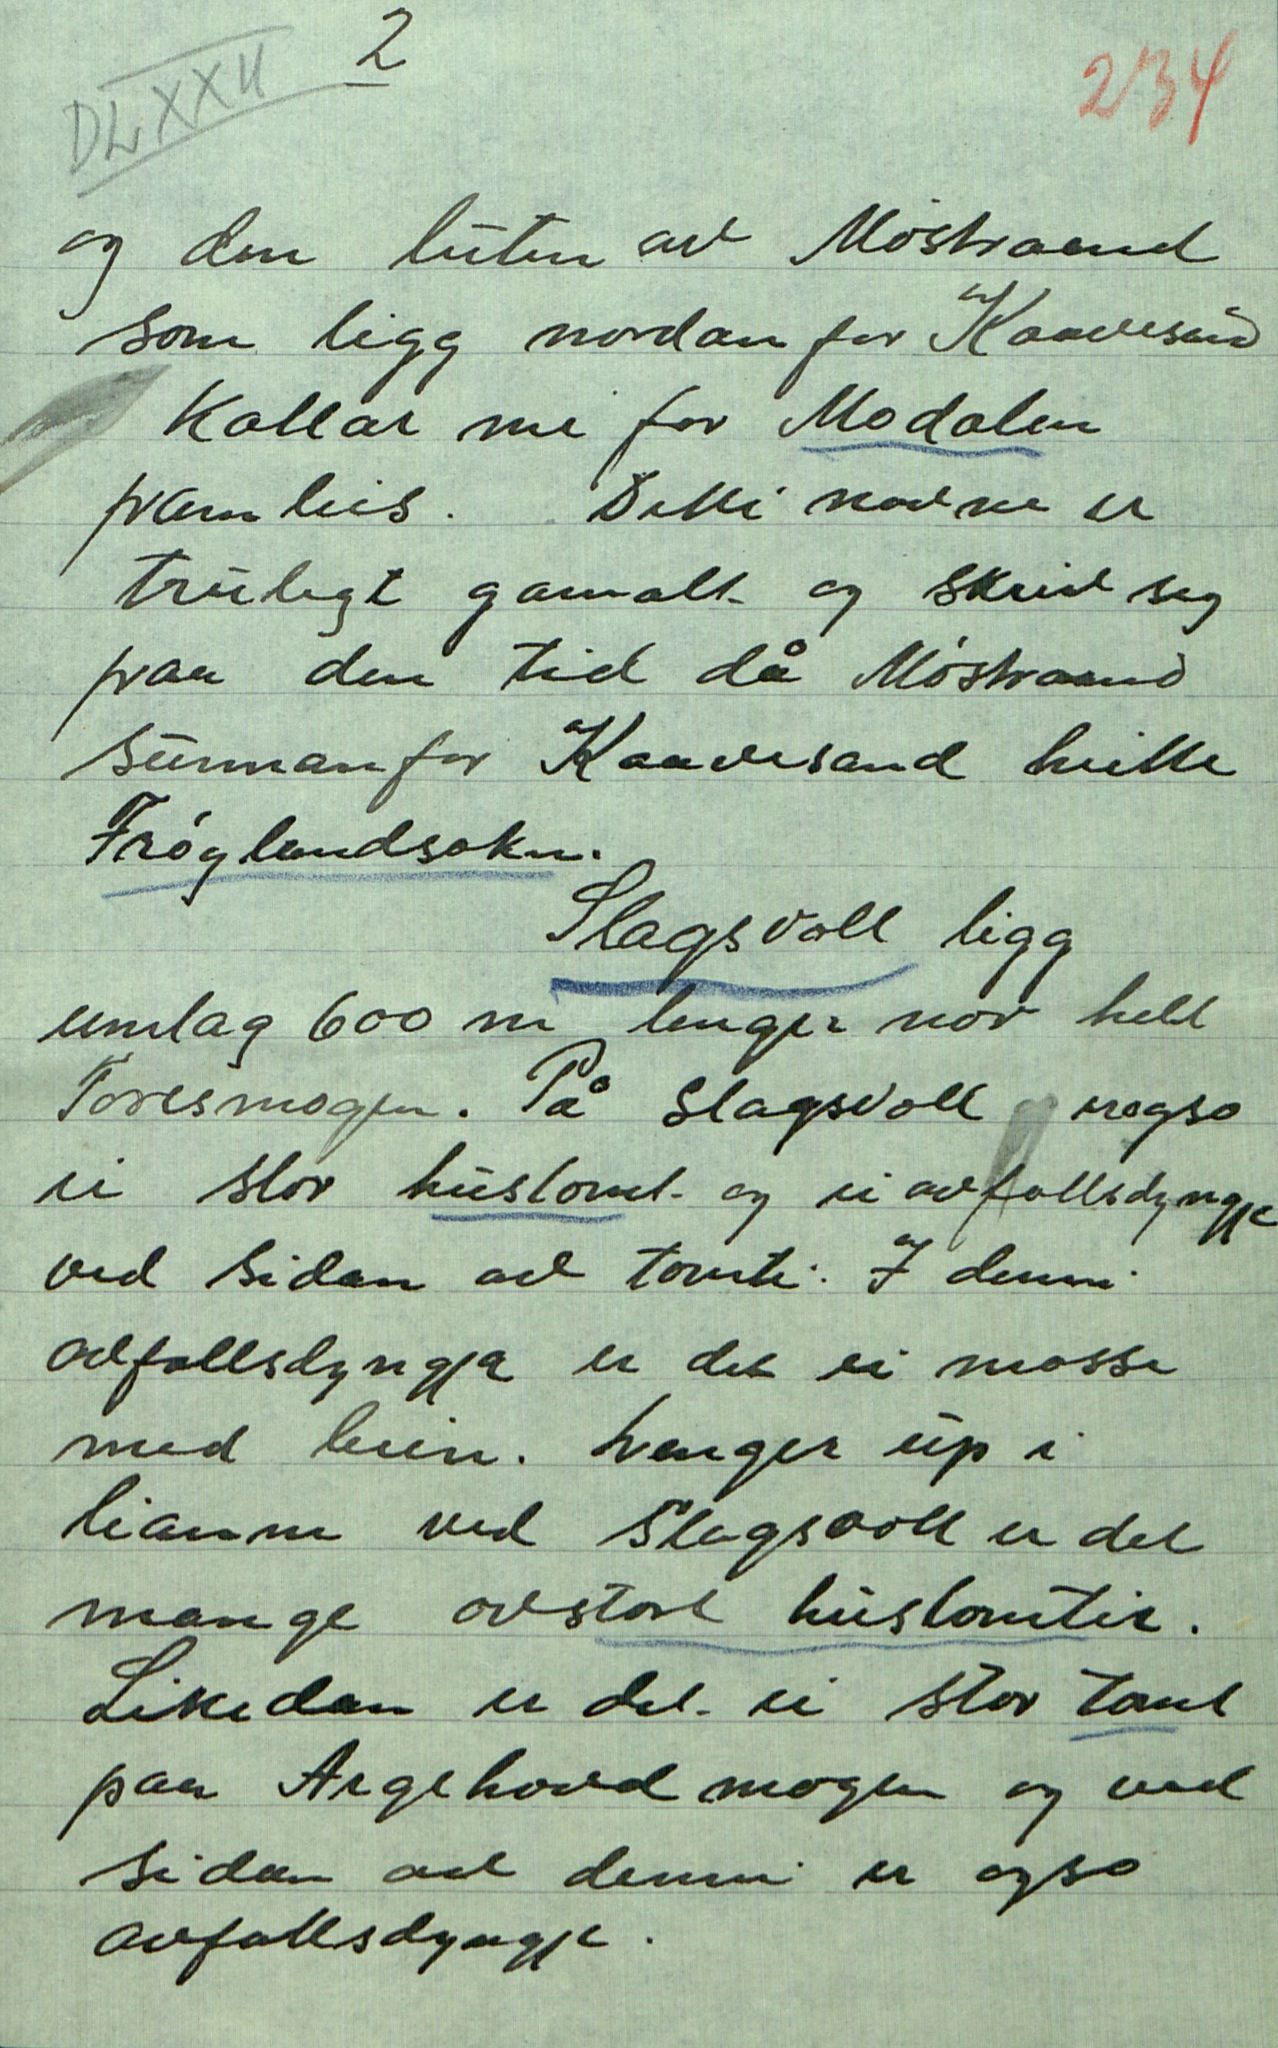 2
234
DLXXII
og den luten av Møstraand
som ligg nordan for Kaavesand
kallar me for Modalen
framleis. Detti navne er
trulegt gamalt og skriv seg
fraa den tid då Møstraand
sunnanfor Kaavesand heitte
Frøylandsokn.
Slagsvoll ligg
umlag 600 m lenger nor hell
Toresmogen. På Slagsvoll er ogso
ei stor hustomt og ei avfallsdyngje
ved sidan av tomti. I denni
avfallsdyngja er det ei masse
med bein. Lenger up i
lianne ved Slagsvoll er det
mange ovstore hustomtir.
Likedan er det ei stor tomt
paa Argehovdmogen og ved
sidan av denni er ogso
avfallsdyngje.